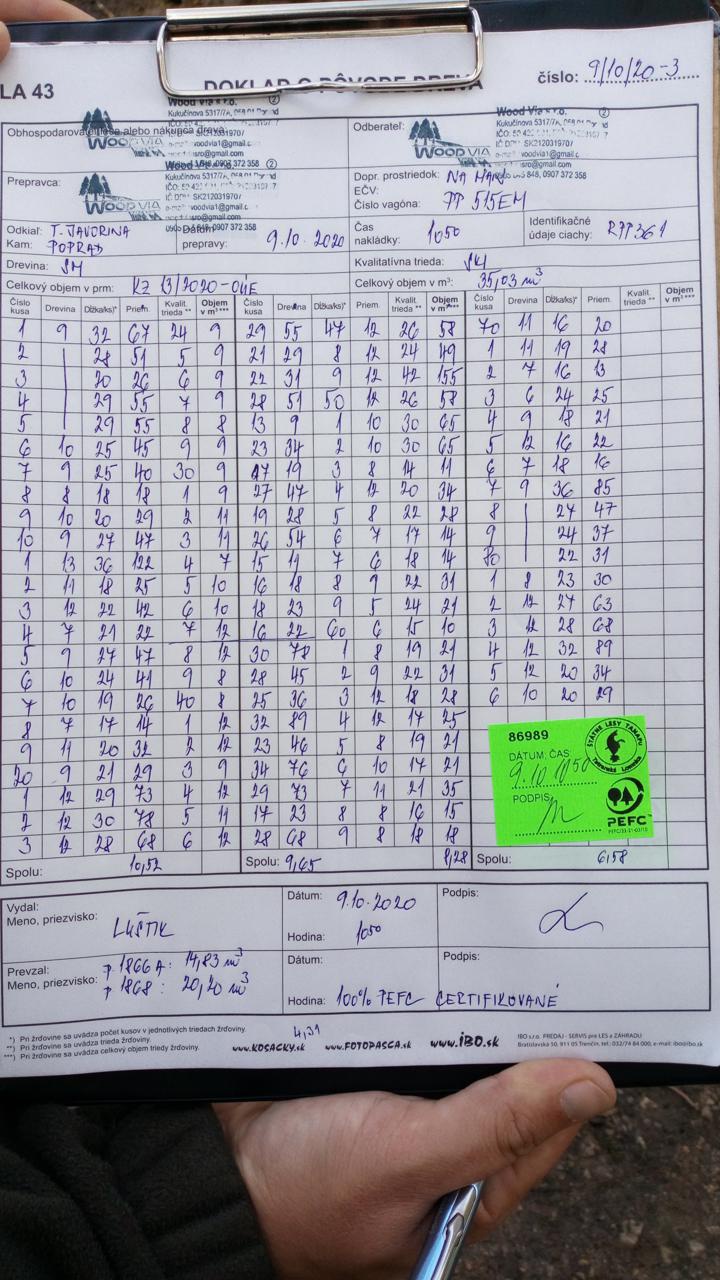 LA 43
DOKLAD O PÔVODE DREVA
číslo: 9/10/20-3
Obhospodarovateľ lesa alebo nákupca dreva:
WOOD VIA
Wood Via s.r.o. ②
Kukučínova 5317/7A,
SK2120319707
woodvia1@gmail.com
0907 372 358
Odberateľ:
WOOD VIA
Wood Via s.r.o. ②
Kukučínova 5317/7A,
SK2120319707
woodvia1@gmail.com
0907 372 358
Prepravca:
WOOD VIA
Wood Via s.r.o. ②
Kukučínova 5317/7A,
woodvia1@gmail.com
0907 372 358
Dopr. prostriedok:
EČV: PP 515EM
Číslo vagóna:
Odkiaľ: T. JAVORINA
Kam: POPRAD
Dátum prepravy: 9.10.2020
Čas nakládky: 1050
Identifikačné údaje ciachy:
Drevina: SM
Kvalitatívna trieda:
Celkový objem v prm: KZ 13/2020-OÚE
Celkový objem v m³: 35,03 m³
Číslo kusa Drevina Dĺžka/ks)* Priem. Kvalit. trieda ** Objem v m³ *** Číslo kusa Drevina Dĺžka/ks)* Priem. Kvalit. trieda ** Objem v m³*** Číslo kusa Drevina Dĺžka/ks)* Priem. Kvalit. trieda ** Objem v m³***
1 9 32 67 24 9 29 55 47 12 26 58 70 11 16 20
2 28 51 5 9 21 29 8 12 24 49 1 11 19 28
3 20 26 6 9 22 31 9 12 42 155 2 7 16 13
4 29 55 7 9 28 51 50 12 26 58 3 6 24 25
5 29 55 8 8 13 9 1 10 30 65 4 9 18 21
6 10 25 45 9 9 23 34 2 10 30 65 5 12 16 22
7 9 25 40 30 9 17 19 3 8 14 11 6 7 18 16
8 8 18 18 1 9 27 47 4 12 20 34 7 9 36 85
9 10 20 29 2 11 19 28 5 8 22 28 8 27 47
10 9 27 47 3 11 26 54 6 7 17 14 9 24 37
1 13 36 122 4 7 15 11 7 6 18 14 80 22 31
2 11 18 25 5 10 16 18 8 9 22 31 1 8 23 30
3 12 22 42 6 10 18 23 9 5 24 21 2 12 27 63
4 7 21 22 7 12 16 22 60 6 15 10 3 12 28 68
5 9 27 47 8 12 30 78 1 8 19 21 4 12 32 89
6 10 24 41 9 8 28 45 2 9 22 31 5 12 20 34
7 10 19 26 40 8 25 36 3 12 18 28 6 10 20 29
8 7 17 14 1 12 32 89 4 12 17 25
9 11 20 32 2 12 23 46 5 8 19 21
20 9 21 29 3 9 34 76 6 10 17 21
1 12 29 73 4 12 29 73 7 11 21 35
2 12 30 78 5 11 17 23 8 8 16 15
3 12 28 68 6 12 28 68 9 8 18 18
86989
DÁTUM, ČAS:
9.10 1050
PODPIS:
ŠTÁTNE LESY TANAPU
Tatranská Lomnica
PEFC
Spolu: 10,52 Spolu: 9,65 8,28 Spolu: 6,58
Vydal:
Meno, priezvisko: LUŠTIK
Dátum: 9.10.2020
Hodina: 1050
Podpis:
Prevzal:
Meno, priezvisko:
p. 1866 A: 14,83 m³
p. 1868: 20,20 m³
Dátum:
Podpis:
Hodina: 100% PEFC CERTIFIKOVANÉ
*) Pri žrďovine sa uvádza počet kusov v jednotlivých triedach žrďoviny.
**) Pri žrďovine sa uvádza trieda žrďoviny.
***) Pri žrďovine sa uvádza celkový objem triedy žrďoviny.
4,31
www.KOSACKY.sk www.FOTOPASCA.sk www.iBO.sk
IBO s.r.o. PREDAJ - SERVIS pre LES a ZÁHRADU
Bratislavská 50, 911 05 Trenčín, tel.: 032/74 84 000, e-mail: ibo@ibo.sk